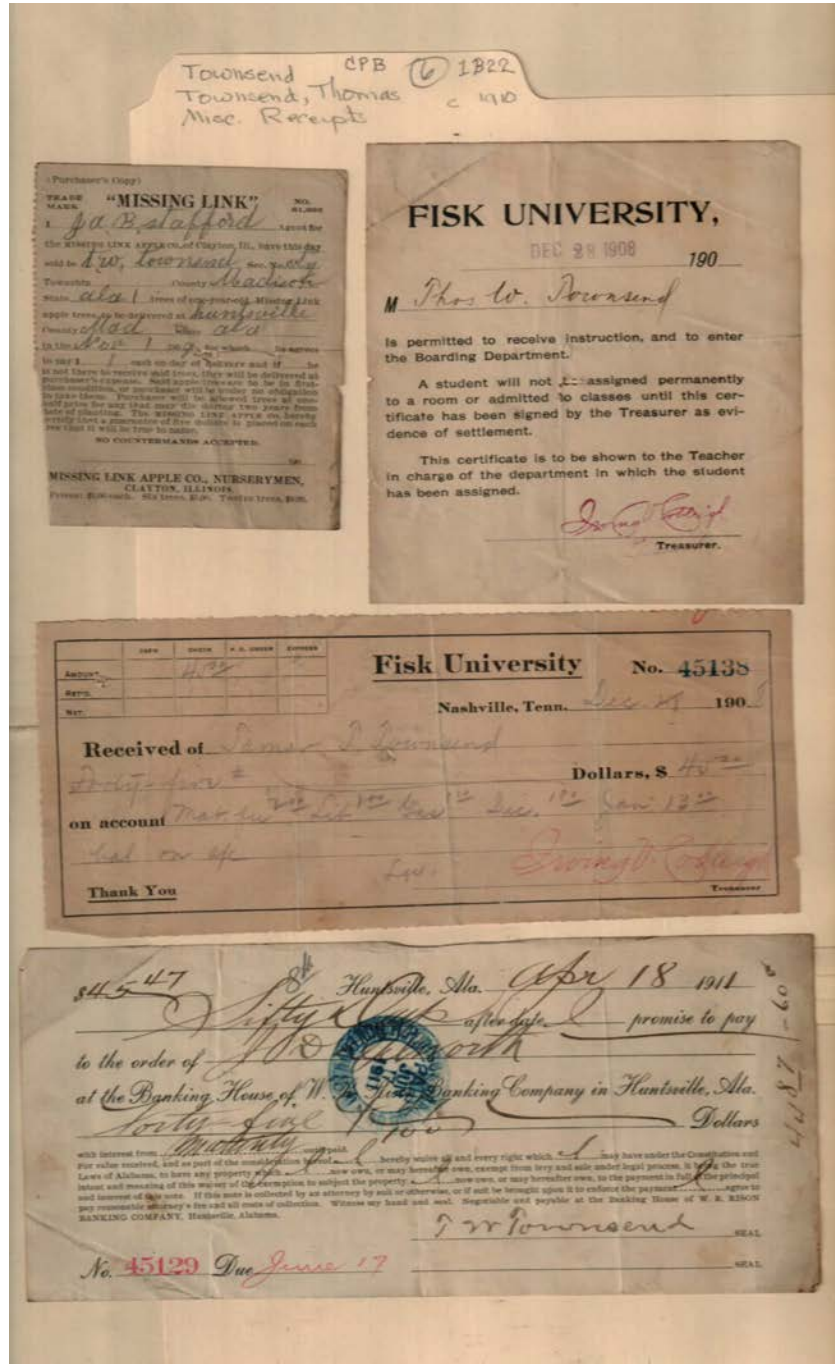 Townsend CPB 6 1B22
Townsend, Thomas c 1910
Misc. Receipts
(Purchaser's Copy)
TRADE MARK "MISSING LINK" NO.
I J. a. B. stafford Agent for
the MISSING LINK APPLE CO., of Clayton, Ill., have this day
sold to t. w. townsend
Township County Madison
State ala 1 trees of one-year-old Missing Link
apple trees, to be delivered at huntsville
County Mad State ala
in the Nov 1 for which he agrees
to pay $ 1 each on day of delivery and if he
is not there to receive said trees, they will be delivered at
purchaser's expense. Said apple trees are to be in first-
class condition, or purchaser will be under no obligation
to take them. Purchaser will be allowed trees at one-
half price for any that may die during two years from
date of planting. The MISSING LINK APPLE CO. hereby
certify that a guarantee of five dollars is placed on each
tree that it will be true to name.
NO COUNTERMANDS ACCEPTED.
MISSING LINK APPLE CO., NURSERYMEN,
CLAYTON, ILLINOIS.
Prices: $1.00 each. Six trees, $5.00. Twelve trees, $9.00.
FISK UNIVERSITY,
DEC 28 1908 190
M Thos W. Townsend
Is permitted to receive instruction, and to enter
the Boarding Department.
A student will not be assigned permanently
to a room or admitted to classes until this cer-
tificate has been signed by the Treasurer as evi-
dence of settlement.
This certificate is to be shown to the Teacher
in charge of the department in which the student
has been assigned.
Treasurer.
CASH CHECK P.O. ORDER EXPRESS
AMOUNT 45 00
RET'D.
NET.
Fisk University No. 45138
Nashville, Tenn. Dec. 28 1908
Received of Townsend
Forty-five Dollars, $ 45 00
on account Dec. Jan 13 00
bal on a/c
Thank You
Treasurer
$45 47 Huntsville, Ala. Apr 18 1911
Sixty days after date I promise to pay
to the order of
at the Banking House of W. R. Rison Banking Company in Huntsville, Ala.
forty five 47/100 Dollars
with interest from maturity until paid.
For value received, and as part of the consideration hereof I hereby waive all and every right which I may have under the Constitution and
Laws of Alabama, to have any property which I now own, or may hereafter own, exempt from levy and sale under legal process, it being the true
intent and meaning of this waiver of the exemption to subject the property I now own, or may hereafter own, to the payment in full of the principal
and interest of this note. If this note is collected by an attorney by suit or otherwise, or if suit be brought upon it to enforce the payment I agree to
pay reasonable attorney's fee and all costs of collection. Witness my hand and seal. Negotiable and payable at the Banking House of W. R. RISON
BANKING COMPANY, Huntsville, Alabama.
T W Townsend SEAL
No. 45129 Due June 17 SEAL
PAID
JUN
1911